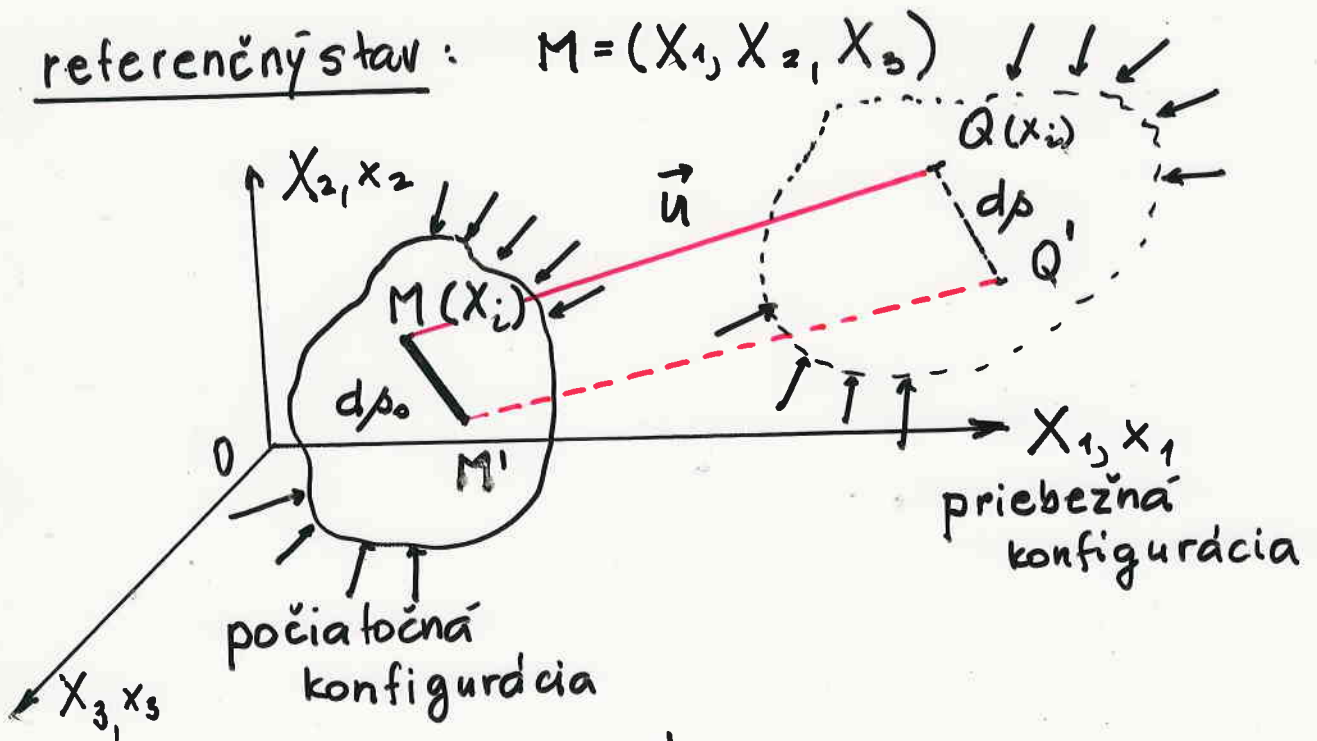 referenčný stav: M = (X₁, X₂, X₃)
X₂, x₂
u⃗
Q(xᵢ)
ds
Q'
M(Xᵢ)
ds₀
M'
0
X₁, x₁
priebežná
konfigurácia
počiatočná
konfigurácia
X₃, x₃